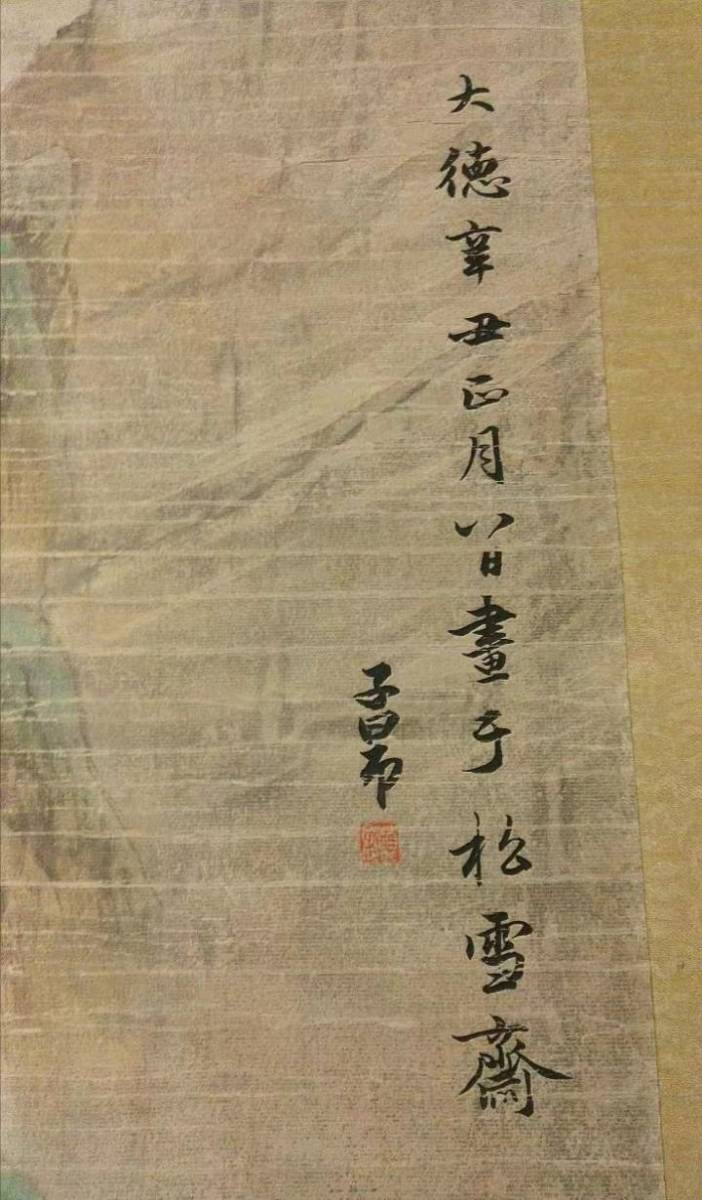 大德辛丑正月八日畫于松雪齋
子昂